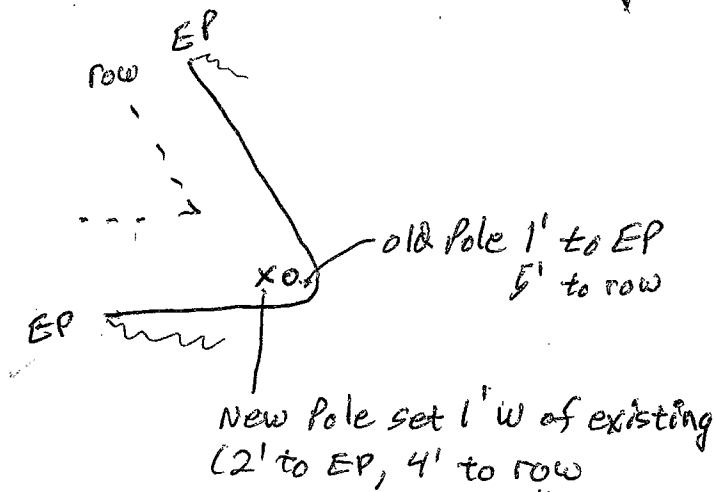 EP
row
old Pole 1' to EP
5' to row
X O
EP
New Pole set 1' W of existing
(2' to EP, 4' to row